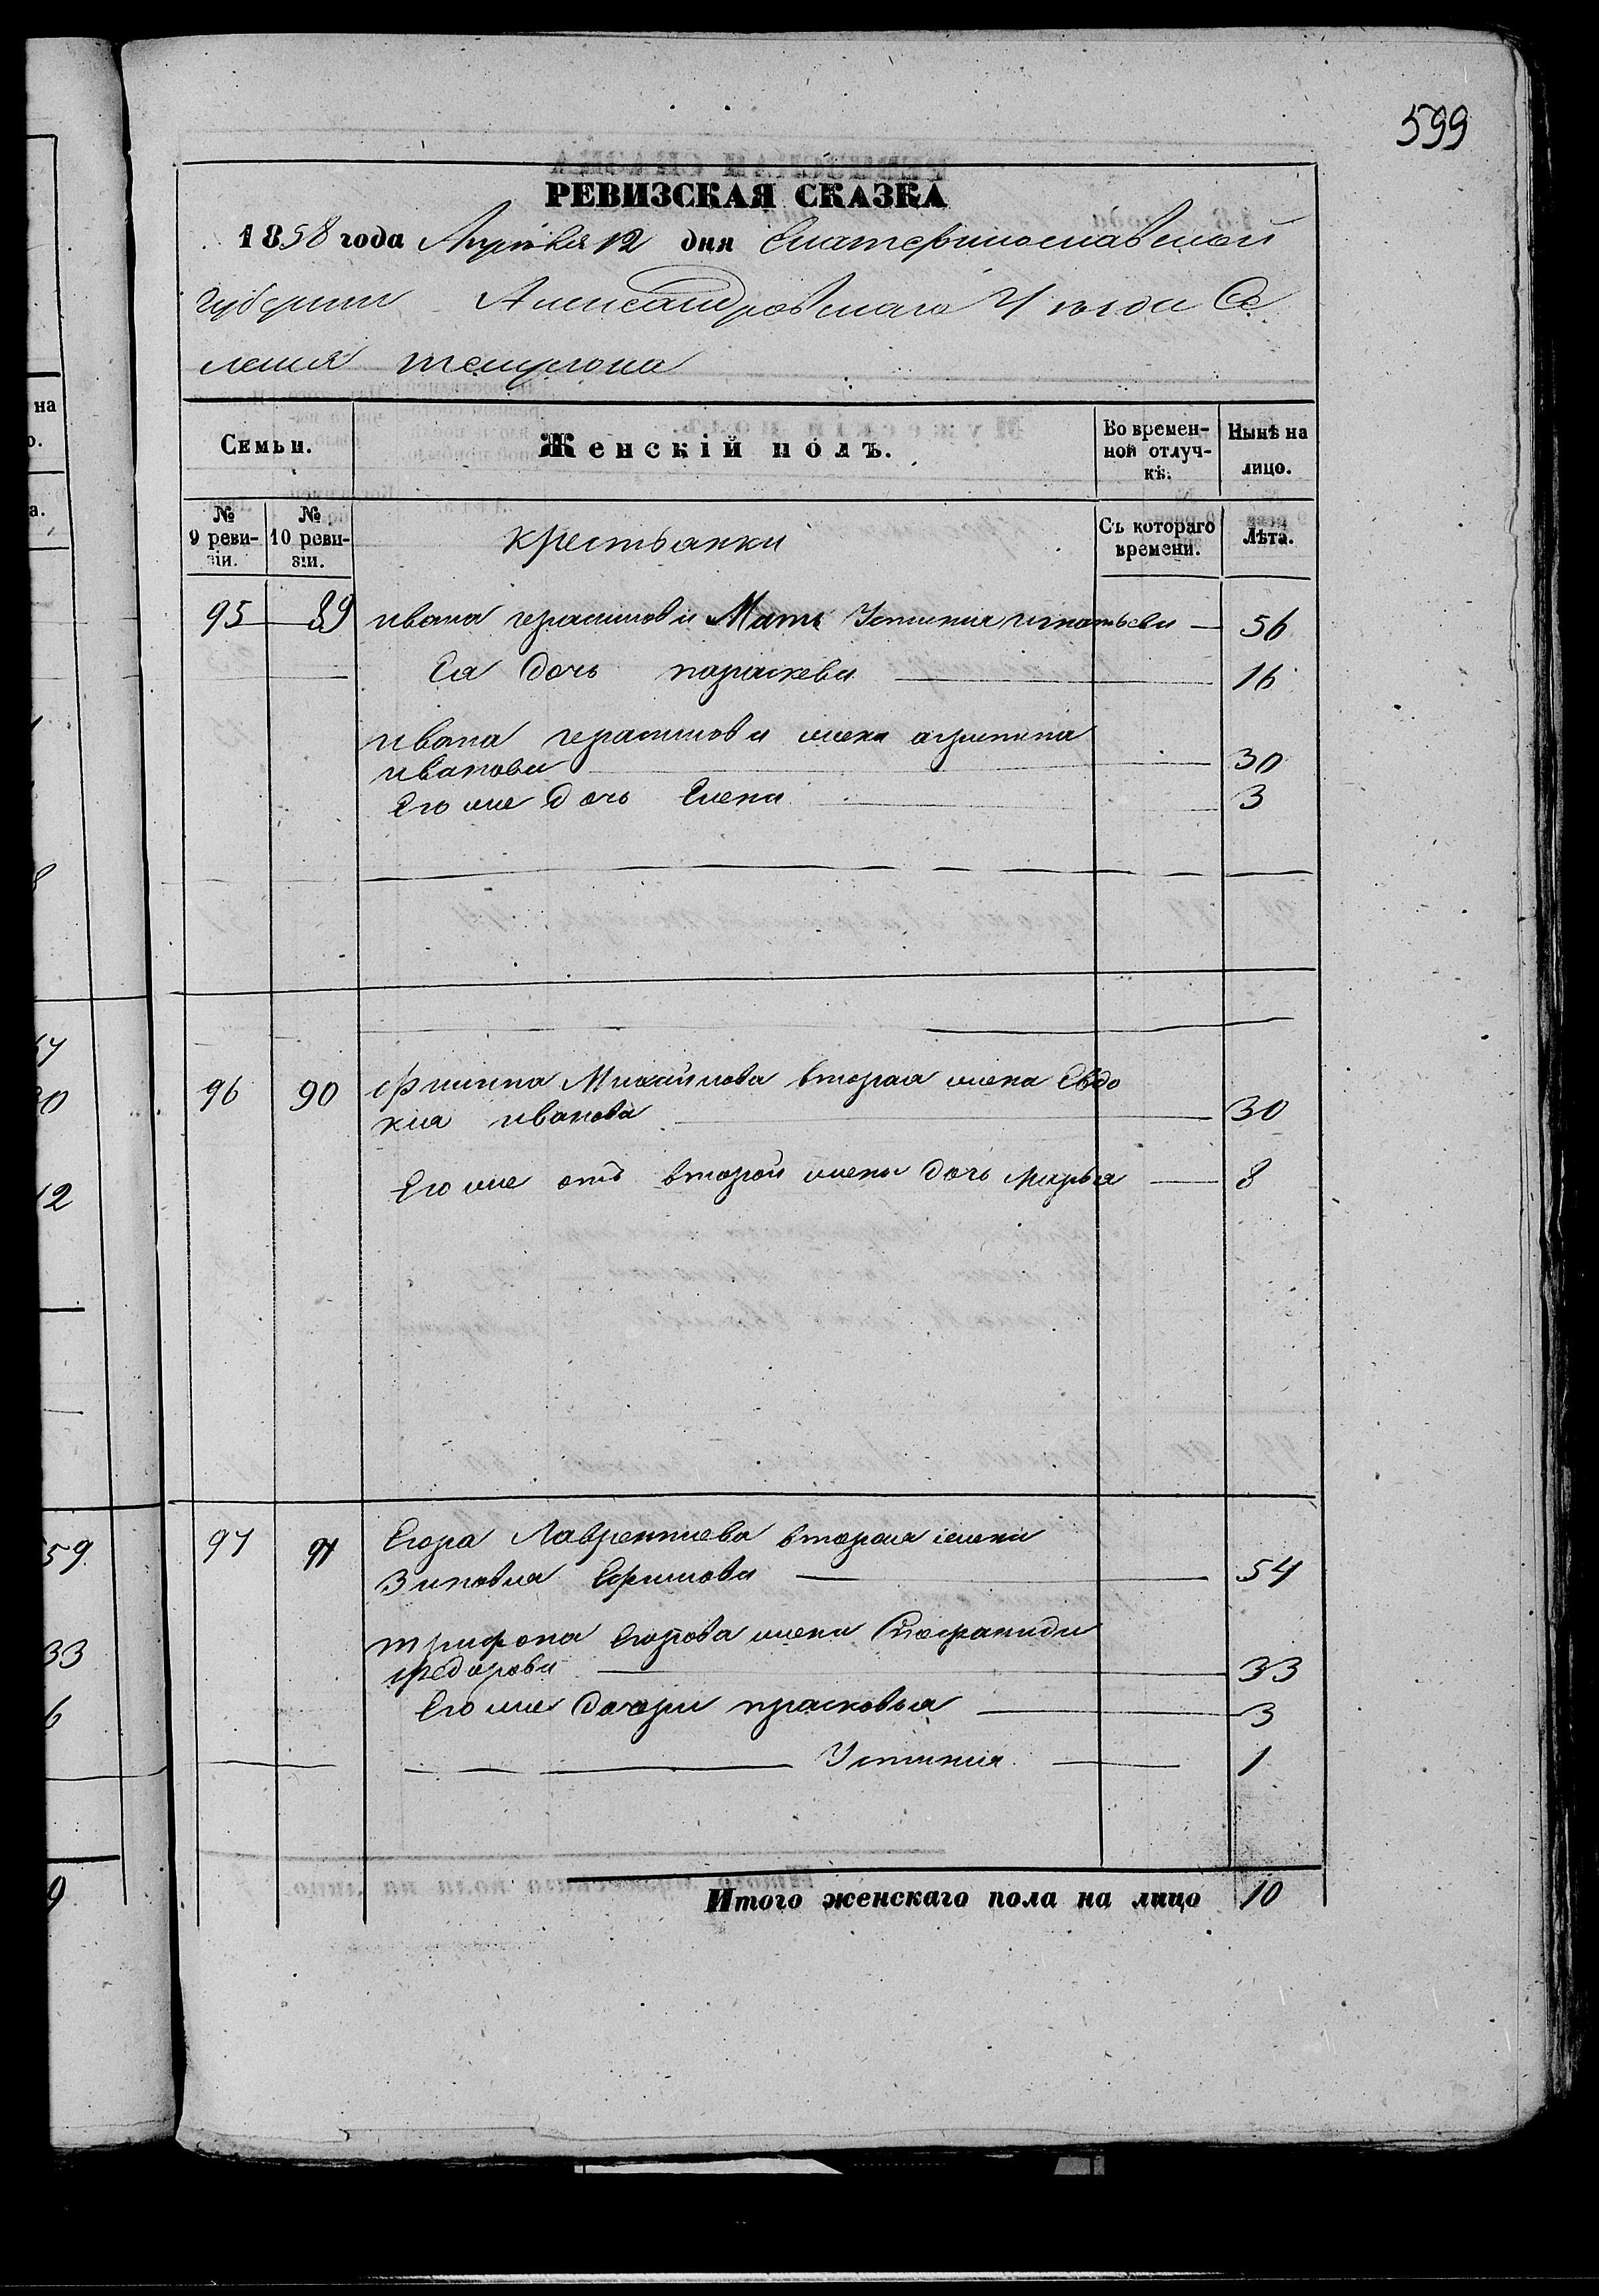 599
РЕВИЗСКАЯ СКАЗКА
1858 года Апреля 12 дня Екатеринославской
губернии Александровскаго Уезда Се
ления темрюка
Семьи. Женскій полъ. Во времен-ной отлуч-кѣ. Нынѣ на лицо.
№ 9 реви-зіи. № 10 реви-зіи. крестьанки Съ котораго времени. Лѣта.
95 89 ивана герасимова Мать Устиния игнатьева 56
Ея дочь параскева 16
ивана герасимова жена агрипина
иванова 30
Его же дочь Елена 3
96 90 филипа Михайлова вторая жена Евдо
кия иванова 30
Его же отъ второй жены дочь марья 8
97 91 Егора Лаврентиева вторая жена
Зиновия Ефимова 54
трифона Егорова жена Стефанида
федорова 33
Его же дочери прасковья 3
Устиния 1
Итого женскаго пола на лицо 10
на
о.
а.
12
59
33
6
9